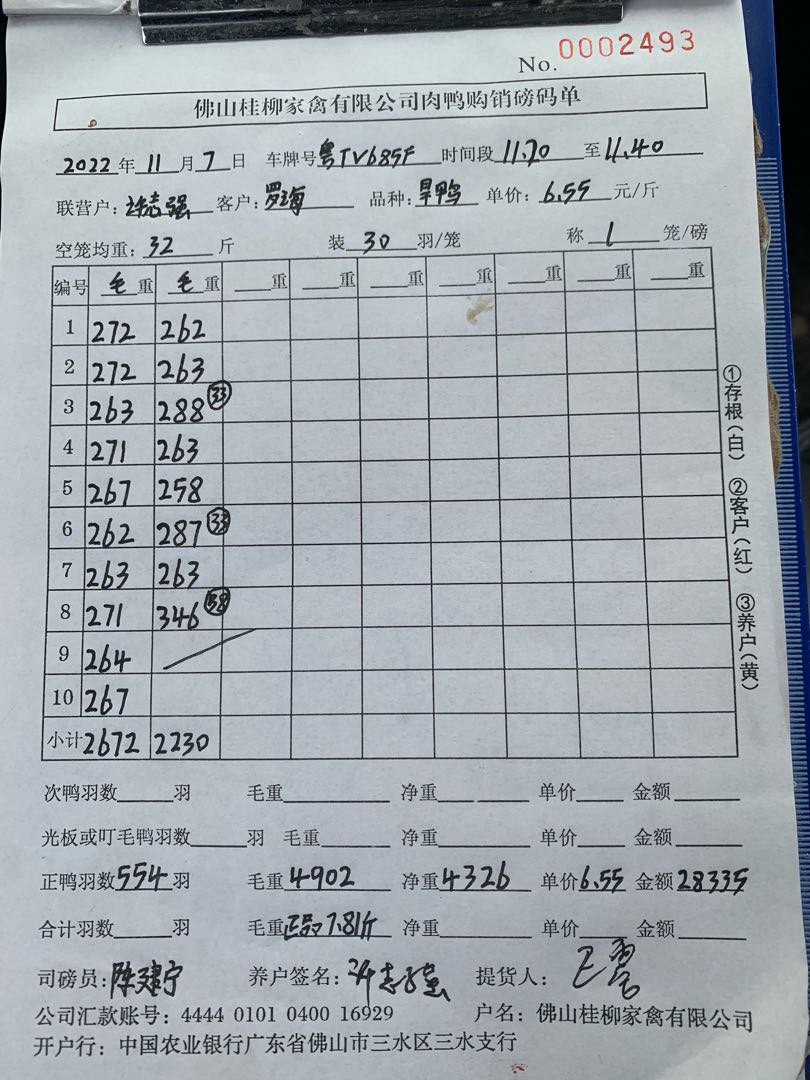 No. 0002493
佛山桂柳家禽有限公司肉鸭购销磅码单
2022年11月7日 车牌号粤TV685F 时间段11.20至11.40
联营户：许志强 客户：罗海 品种：旱鸭 单价：6.55元/斤
空笼均重：32斤 装30羽/笼 称1笼/磅
编号 毛重 毛重 重 重 重 重 重 重 重
1 272 262
2 272 263
3 263 288 33
4 271 263
5 267 258
6 262 287 33
7 263 263
8 271 346 38
9 264
10 267
小计 2672 2230
次鸭羽数 羽 毛重 净重 单价 金额
光板或叮毛鸭羽数 羽 毛重 净重 单价 金额
正鸭羽数554羽 毛重4902 净重4326 单价6.55 金额28335
合计羽数 羽 毛重 7.81斤 净重 单价 金额
司磅员：陈建宁 养户签名：许志强 提货人：
公司汇款账号：4444 0101 0400 16929 户名：佛山桂柳家禽有限公司
开户行：中国农业银行广东省佛山市三水区三水支行
①存根（白） ②客户（红） ③养户（黄）